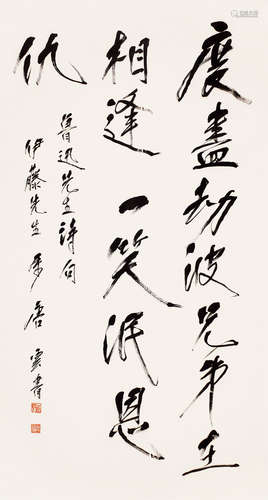 度盡劫波兄弟在
相逢一笑泯恩
仇
魯迅先生詩句
伊藤先生 唐雲書